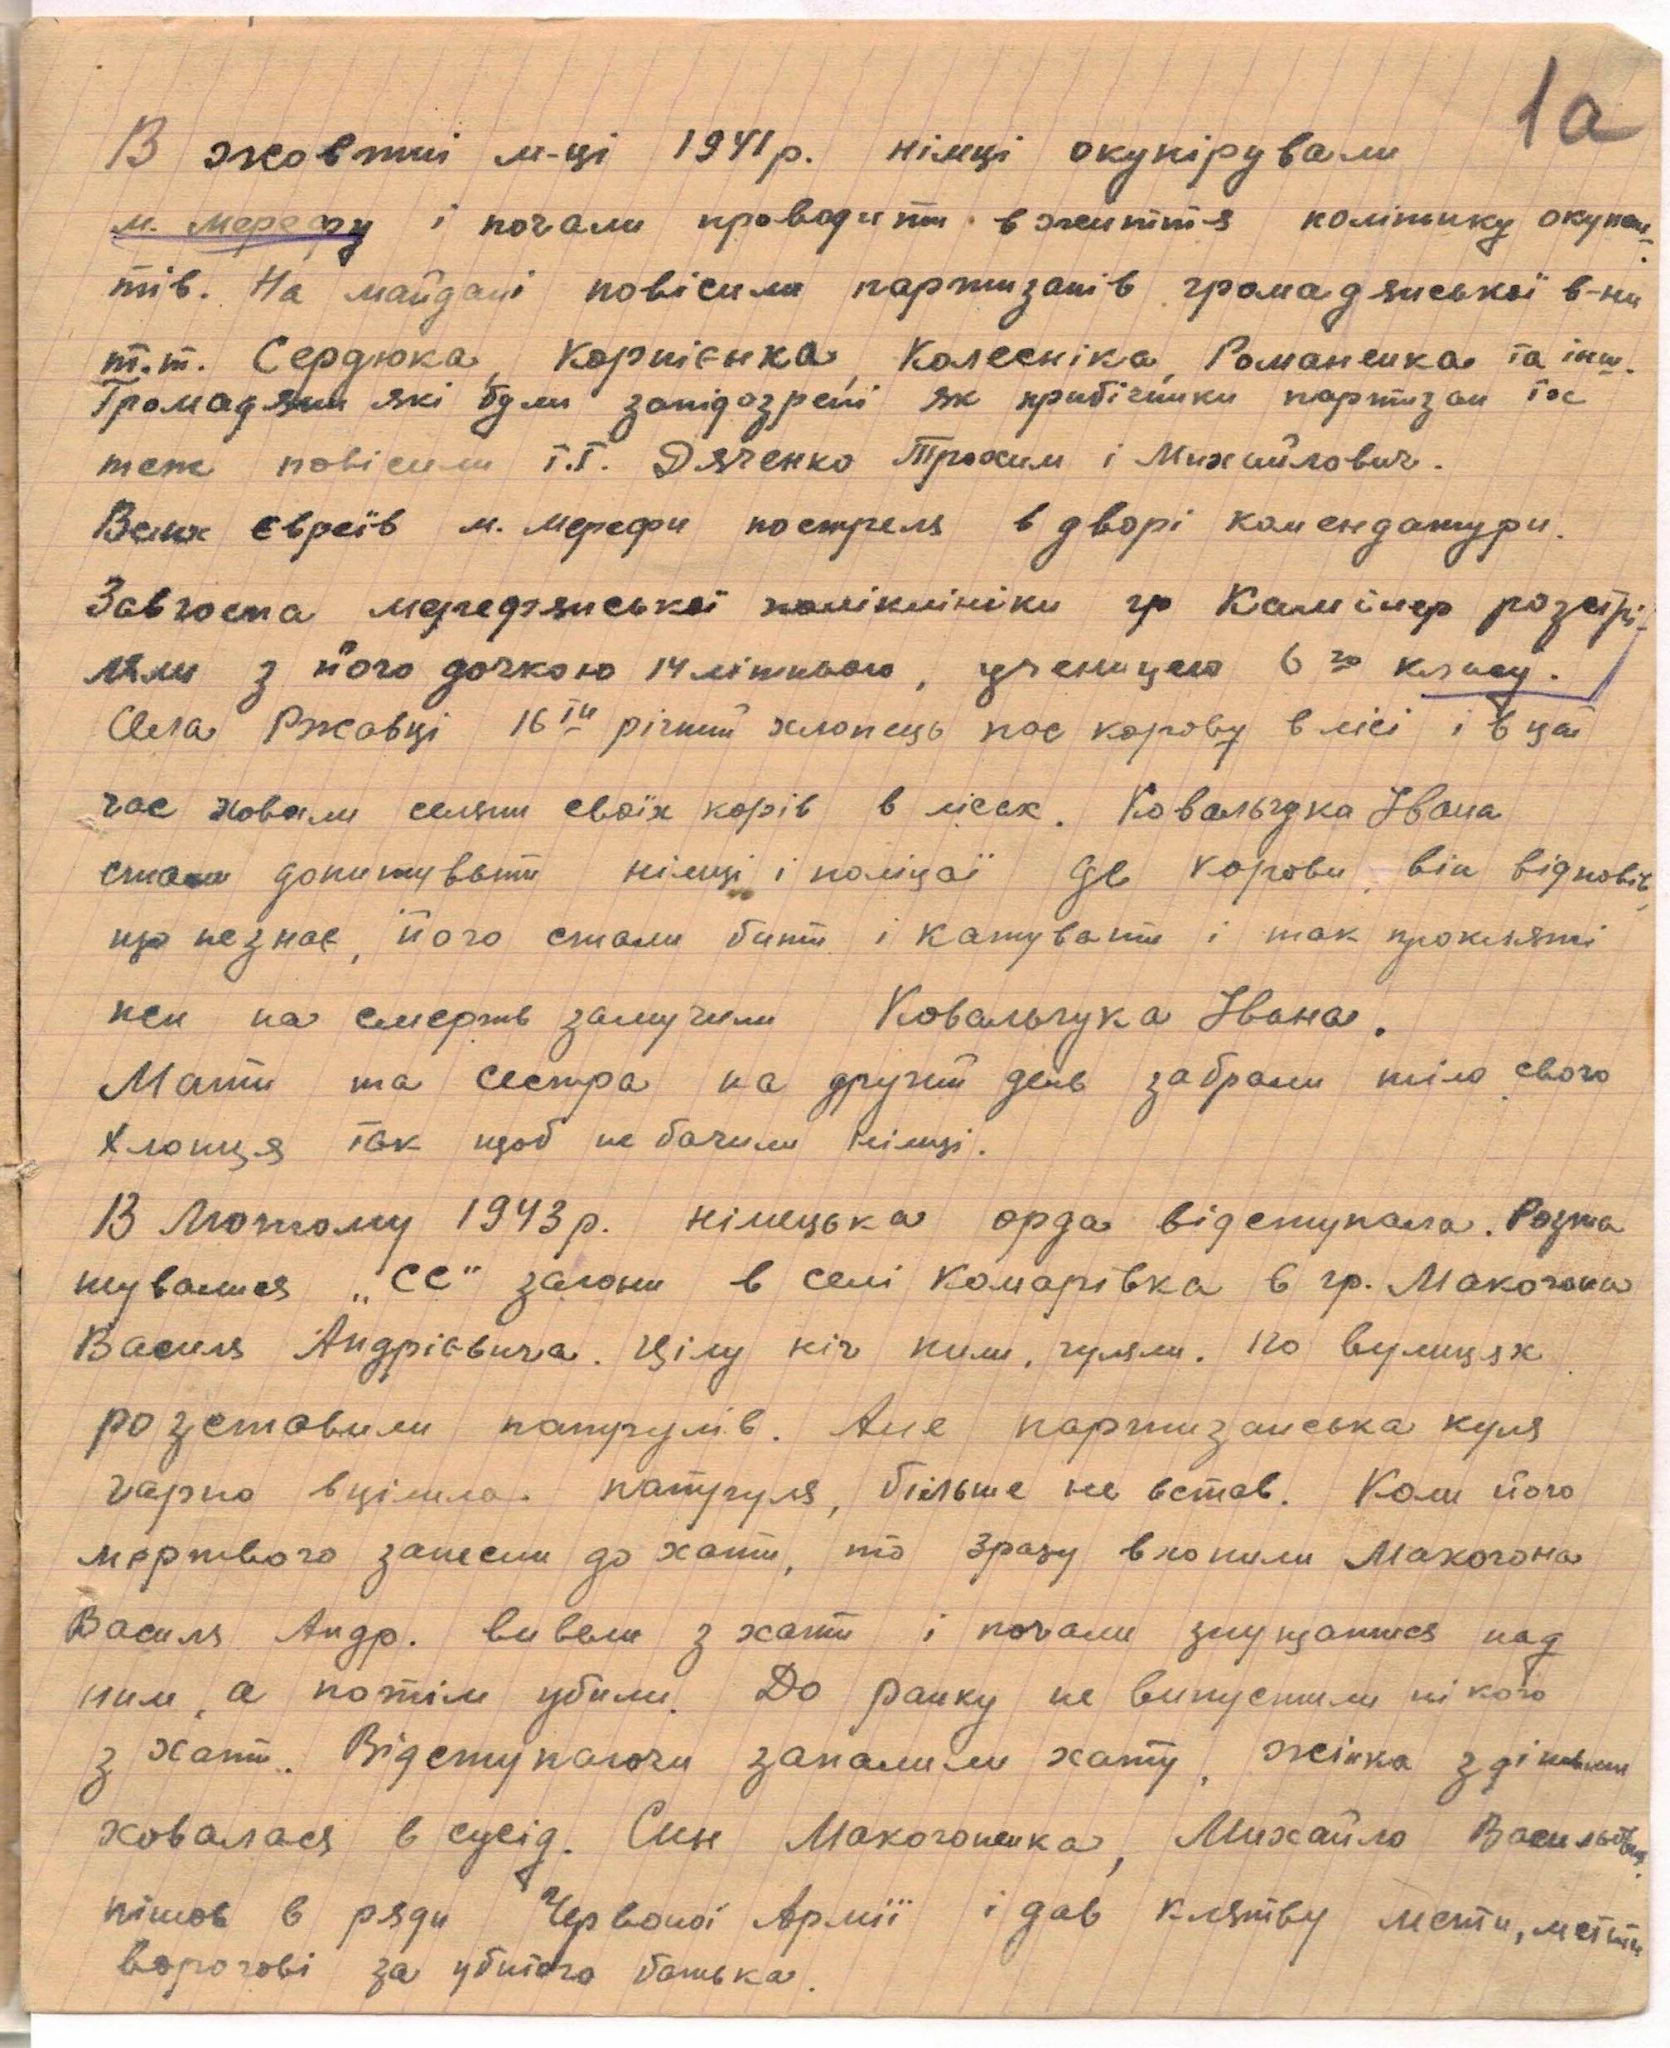 1а
В жовтні м-ці 1941 р. німці окупірували
м. Мерефу і почали проводити в життя політику окупан-
тів. На майдані повісили партизанів громадянської в-ни
т.т. Сердюка, Корнієнка, Колесніка, Романенка та інш.
Громадяни які були запідозрені як прибічники партизан їх
теж повісили т.т. Дяченко Трохим і Михайлович.
Всих євреїв м. Мерефи постреля в дворі комендатури.
Завгоспа мереф'янської поліклініки гр Камінер розстрі-
ляли з його дочкою 14 літньою, ученицею 6го класу.
Села Ржавці 16ти річний хлопець пас корову в лісі і в цей
час ховали селяни своїх корів в лісах. Ковальчука Івана
стали допитувати німці і поліцаї де корови, він відповів,
що незнає, його стали бити і катувати і так прокляті
пси на смерть замучили Ковальчука Івана.
Мати та сестра на другий день забрали тіло свого
хлопця так щоб не бачили німці.
В Лютому 1943 р. німецька орда відступала. Розта
шувалися „СС" загони в селі Комарівка в гр. Макогона
Василя Андрієвича. Цілу ніч пили, гуляли. По вулицях
розставили патрулів. Але партизанська куля
гарно вцілила патруля, більше не встав. Коли його
мертвого занесли до хати, то зразу вхопили Макогона
Василя Андр. вивели з хати і почали знущатися над
ним, а потім убили. До ранку не випустили нікого
з хати. Відступаючи запалили хату, жінка з дітьми
ховалася в сусід. Син Макогоненка, Михайло Васильович
пішов в ряди Червоної Армії і дав клятву мсти, мстити
ворогові за убитого батька.